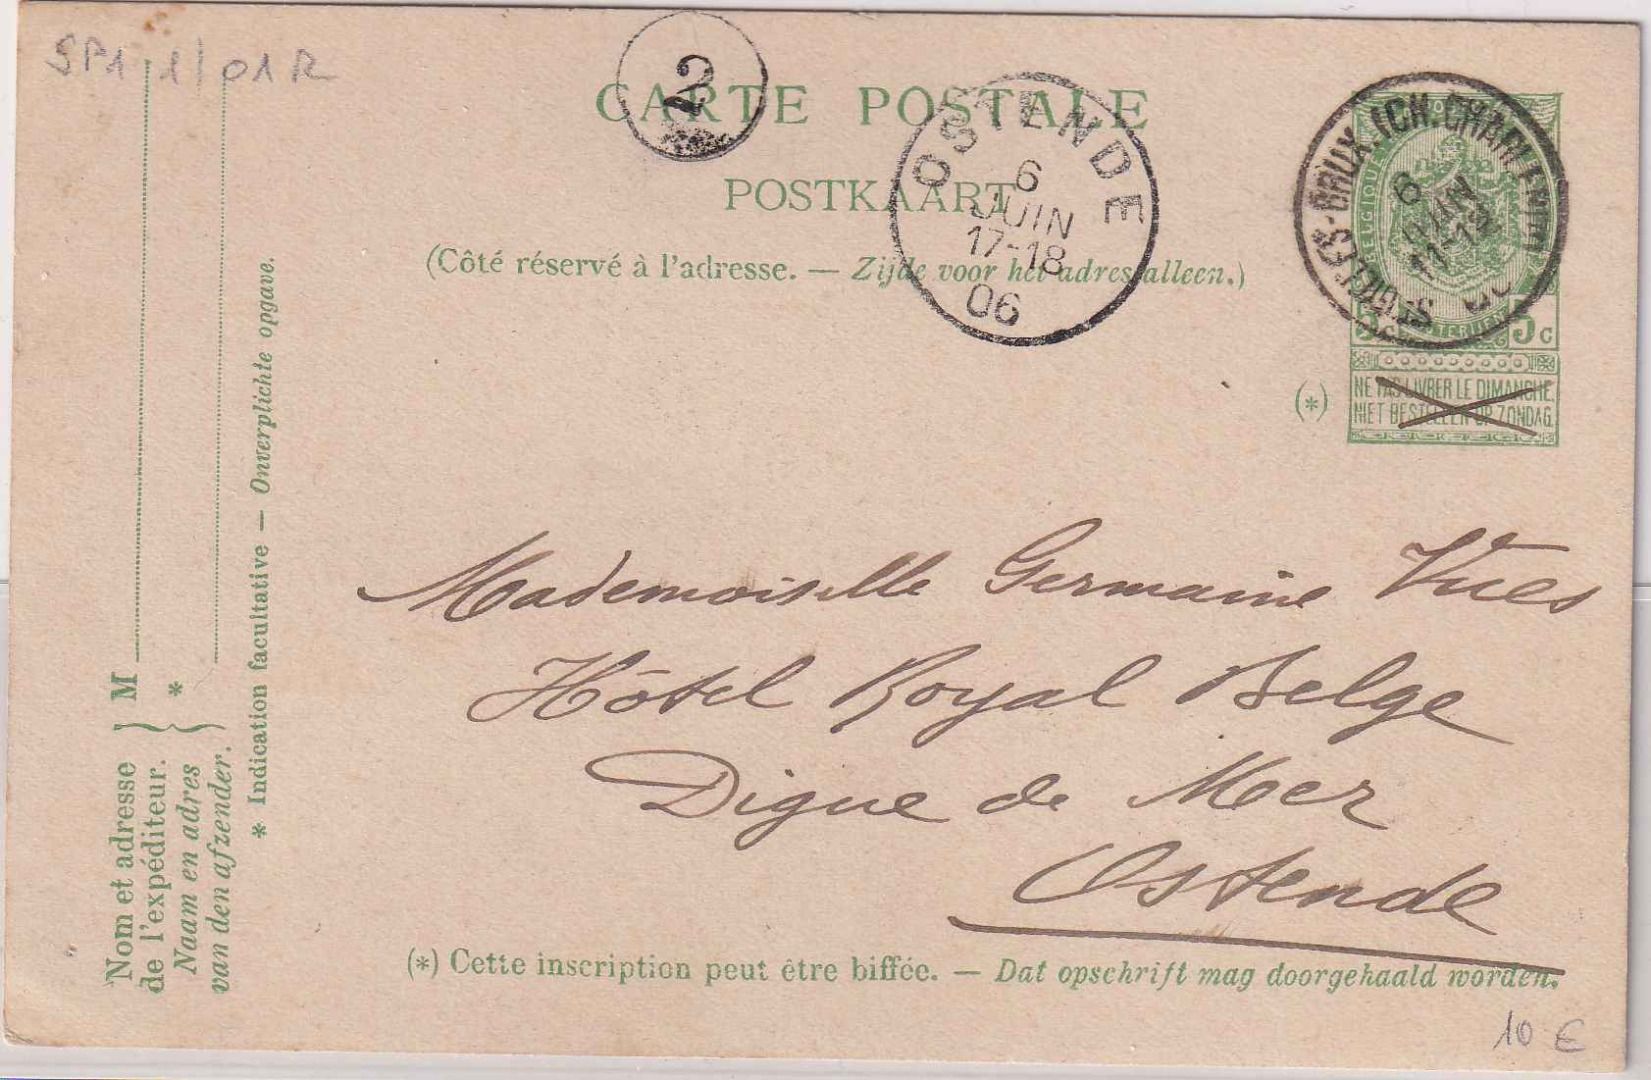 SP1 1/01R
2
CARTE POSTALE
POSTKAART
(Côté réservé à l'adresse. — Zijde voor het adres alleen.)
OSTENDE
6
JUIN
17-18
06
ST GILLES-BRUX.
6
JUIN
11-12
BELGIQUE
5c 5c
NE PAS LIVRER LE DIMANCHE.
NIET BESTELLEN OP ZONDAG.
(*)
Mademoiselle Germaine Vues
Hôtel Royal Belge
Digue de Mer
Ostende
(*) Cette inscription peut être biffée. — Dat opschrift mag doorgehaald worden.
Nom et adresse
de l'expéditeur.
M
Naam en adres
van den afzender.
*
* Indication facultative — Onverplichte opgave.
10 €